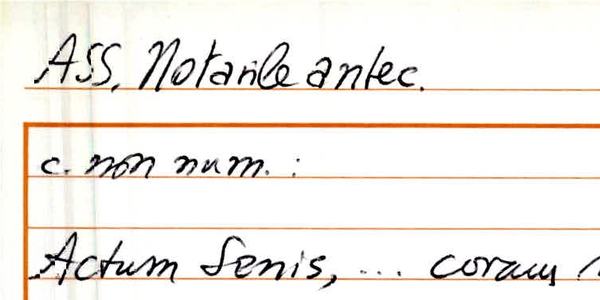 ASS, Notarile antec.
c. non num. :
Actum Senis, ... coram